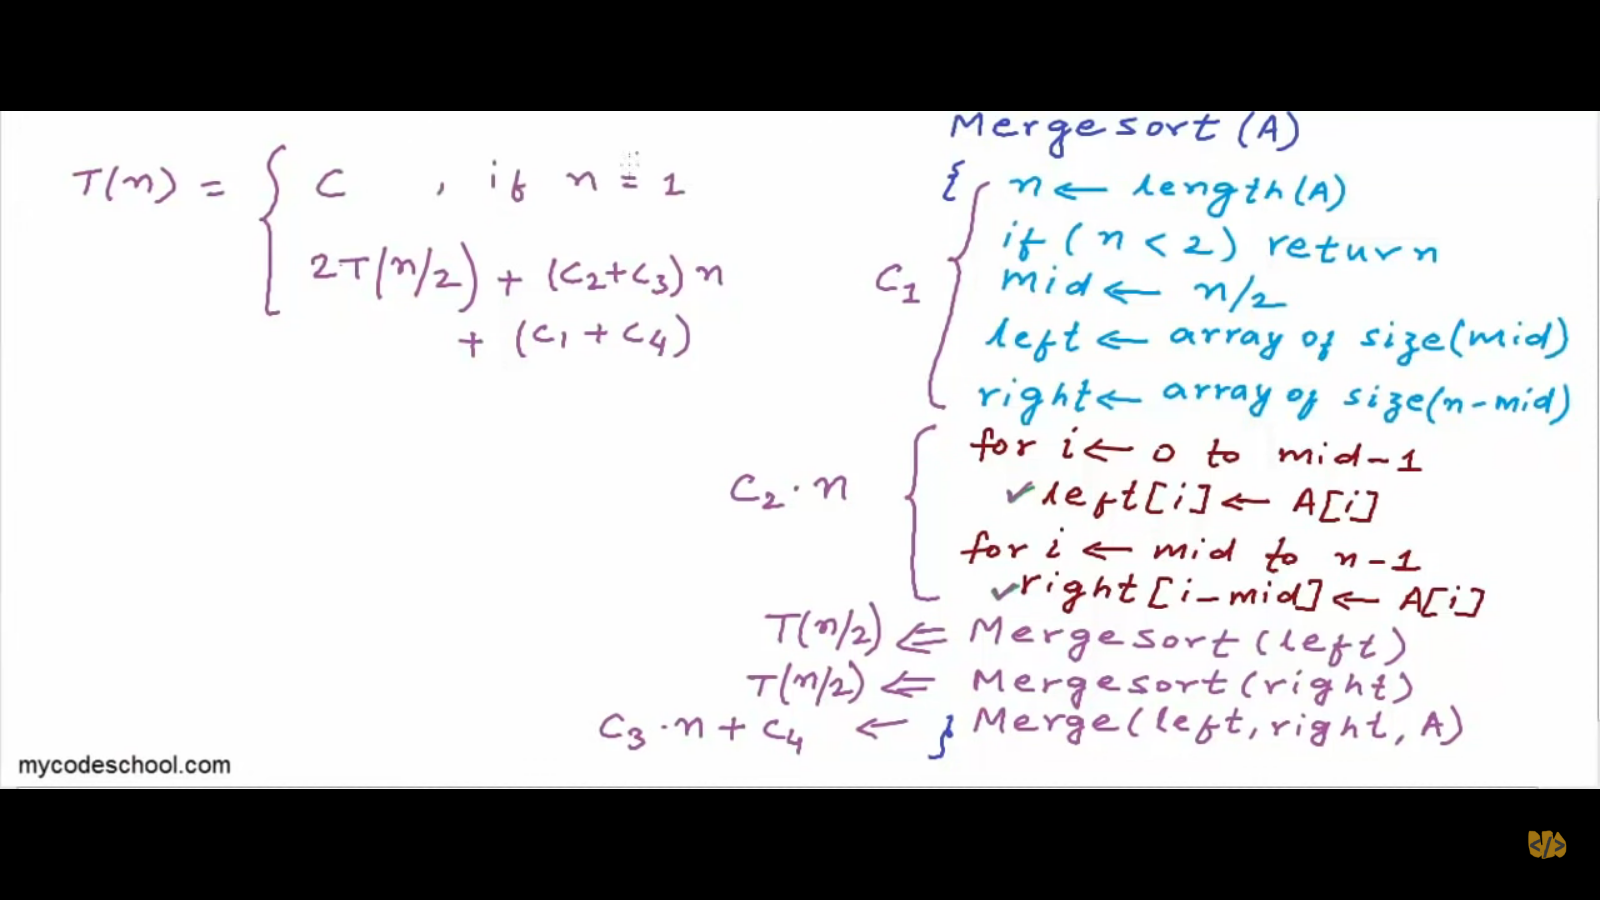 T(n) = { C , if n = 1
2T(n/2) + (C2+C3) n
+ (C1 + C4)
Mergesort (A)
{
C1 { n ← length(A)
if (n < 2) return
mid ← n/2
left ← array of size(mid)
right ← array of size(n-mid)
C2·n { for i ← 0 to mid-1
✓ left[i] ← A[i]
for i ← mid to n-1
✓ right[i-mid] ← A[i]
T(n/2) ⇐ Mergesort(left)
T(n/2) ⇐ Mergesort(right)
C3·n + C4 ← } Merge(left, right, A)
mycodeschool.com